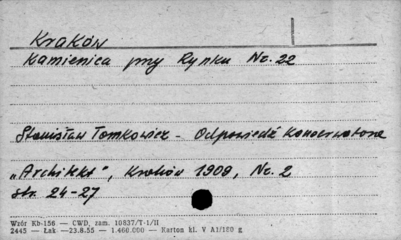 Kraków
Kamienica przy Rynku Nr. 22
Stanisław Tomkowicz - Odpowiedź Konserwatora
„Architekt", Kraków 1909, Nr. 2
str. 24-27
Wzór Kb-156 — CWD, zam. 10837/T-1/II
2445 — Łsk —23.8.55 — 1.460.000 — Karton kl. V A1/180 g